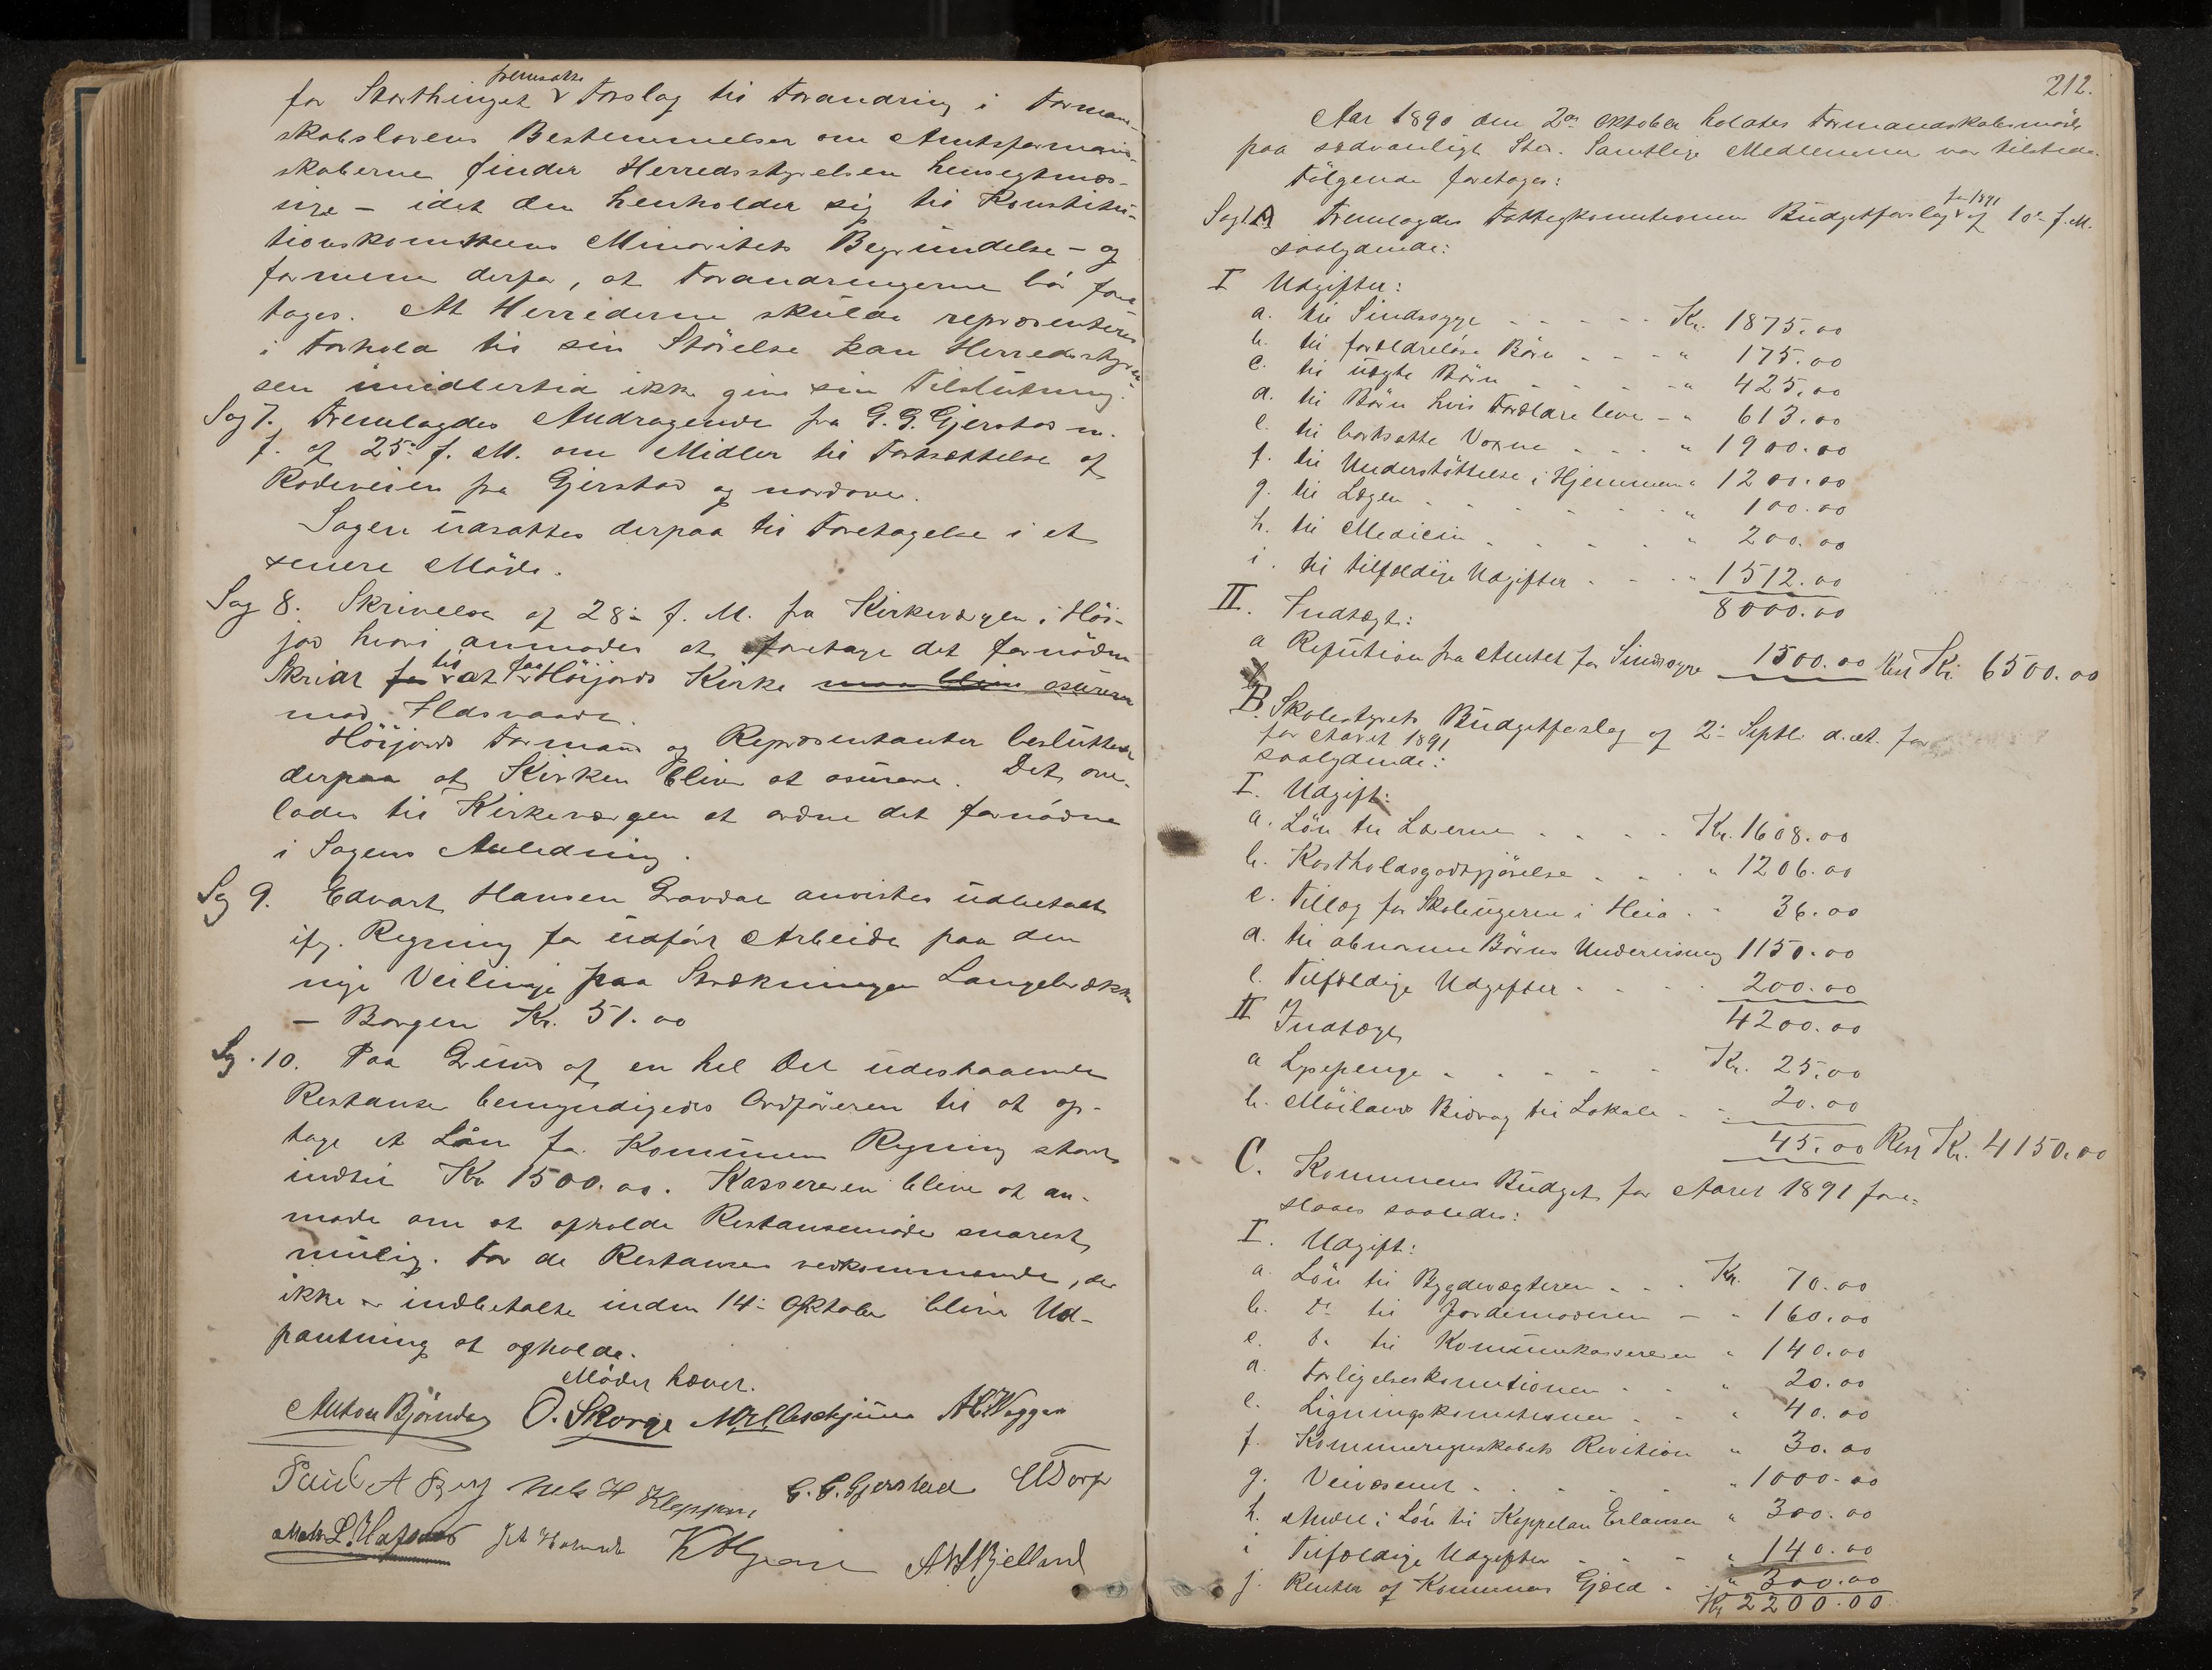 for Storthinget fremsatte Forslag til Forandring i Formand-
skabslovens Bestemmelser om Amtsformand-
skaberne finder Herredsstyrelsen hensegtmæs-
sige – idet den henholder sig til Konstitu-
tionskomiteens Minoritets Begründelse – og
formene derfor, at Forandringerne bör fore
tages. At Herrederne skulde repræsenteres
i Forhold til sin Störelse kan Herredsstyrel-
sen imidlertid ikke give sin Tilslutning.
Sag 7. Fremlagdes Andragende fra G. G. Gjerstad m.
f. af 25de f. M. om Midler til Fortsættelse af
Rodeveien fra Gjerstad og nordover.
Sagen udsattes derpaa til Foretagelse i et
senere Möde.
Sag 8. Skrivelse af 28de f. M. fra Kirkeværgen i Höi-
jord hvori anmodes at foretage det fornödne
Skridt for til at faa Höijords Kirke maa blive asüreret
mod Ildsvaade.
Höijords Formand og Repræsentanter besluttede
derpaa at Kirken bliver at asürere. Det over-
lades til Kirkeværgen at ordne det fornödne
i Sagens Anledning.
Sag 9. Edvart Hansen Gravdal anvistes udbetalt
ifg. Regning for udfört Arbeide paa den
nye Veilinje paa Strækningen Langebrække
– Borgen Kr. 51.00
Sag 10. Paa Grund af en hel Del udestaaende
Restanser bemyndigedes Ordföreren til at op-
tage et Lån for Kommunens Regning stort
indtil Kr 1500.00. Kassereren bliver at an-
mode om at afholde Restansemöde snarest
mulig. For de Restansers vedkommende, der
ikke er indbetalte inden 14de Oktober bliver Ud-
pantning at afholde.
Mödet hævet.
Anton Björndag O. Skorge M. Hleskjünne A. C. Waggen
Paul A Berg Nels H Kleppan G. G. Gjerstad Dorp
L. Hafsnes A W Bjelland
212.
Aar 1890 den 2den Oktober holdtes Formandskabsmöde
paa sædvanligt Sted. Samtlige Medlemmer var tilstede.
Fölgende foretages:
Sag 1. A Fremlagdes Fattigkomitionens Budgetforslag for 1891 af 10de f. M.
saalydende:
I Udgifter:
a. til Sindssyge - - - - - Kr. 1875.00
b. til forældrelöse Börn - - - " 175.00
c. til uægte Börn - - - - " 425.00
d. til Börn hvis Forældre leve - " 613.00
e. til bortsatte Voxne - - - " 1900.00
f. til Understöttelse i Hjemmene " 1200.00
g. til Lægen - - - - - " 100.00
h. til Medicin - - - - " 200.00
i. til tilfældige Udgifter - - - " 1512.00
8000.00
II. Indtægt:
a Refution fra Amtet for Sindssyge 1500.00 Rest Kr. 6500.00
B. Skolestyrets Budgetforslag af 2de Septbr. d. A. for
for Aaret 1891
saalydende:
I. Udgift:
a. Lön til Lærerne - - - - Kr. 1608.00
b. Kostholdsgodtgjörelse - - - " 1206.00
c. Tillæg for Skoleugerne i Heia - " 36.00
d. til abnorme Börns Undervisning 1150.00
e. Tilfældige Udgifter - - - - 200.00
4200.00
II Indtægt
a Lysepenge - - - - - Kr. 25.00
b. Möilands Bidrag til Lokale - - 20.00
45.00 Rest Kr. 4150.00
C. Kommunens Budget for Aaret 1891 fore-
slaaes saaledes:
I. Udgift:
a. Lön til Bygdevægteren - - - Kr. 70.00
b. Do til Jordemoderen – " 160.00
c. Do til Kommunekassereren " 140.00
d. Forligelseskomitionen - - " 20.00
e. Ligningskomitionen - - " 40.00
f. Kommuneregnskabets Revition " 30.00
g. Veivæsenet - - - - - " 1000.00
h. Andel i Lön til Kappelan Erlansen " 300.00
i Tilfældige Udgifter - - - " 140.00
j. Renter af Kommunens Gjæld - " 300.00
Kr 2200.00